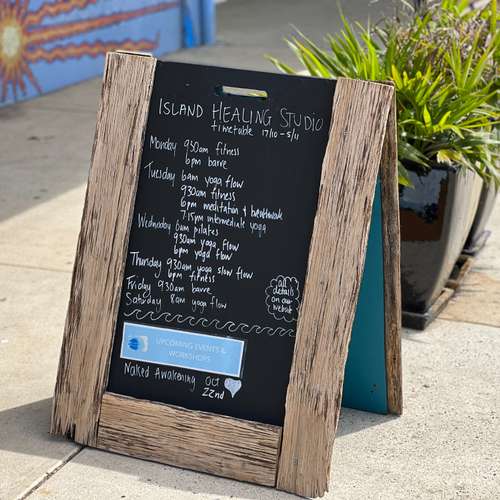 ISLAND HEALING STUDIO
timetable 17/10 - 5/11
Monday 930am fitness
6pm barre
Tuesday 6am yoga flow
930am fitness
6pm meditation & breathwork
7.15pm intermediate yoga
Wednesday 6am pilates
930am yoga flow
6pm yoga flow
Thursday 930am yoga slow flow
6pm fitness
Friday 930am barre
Saturday 8am yoga flow
all
details
on our
website
UPCOMING EVENTS &
WORKSHOPS
Naked Awakening OCT
22nd